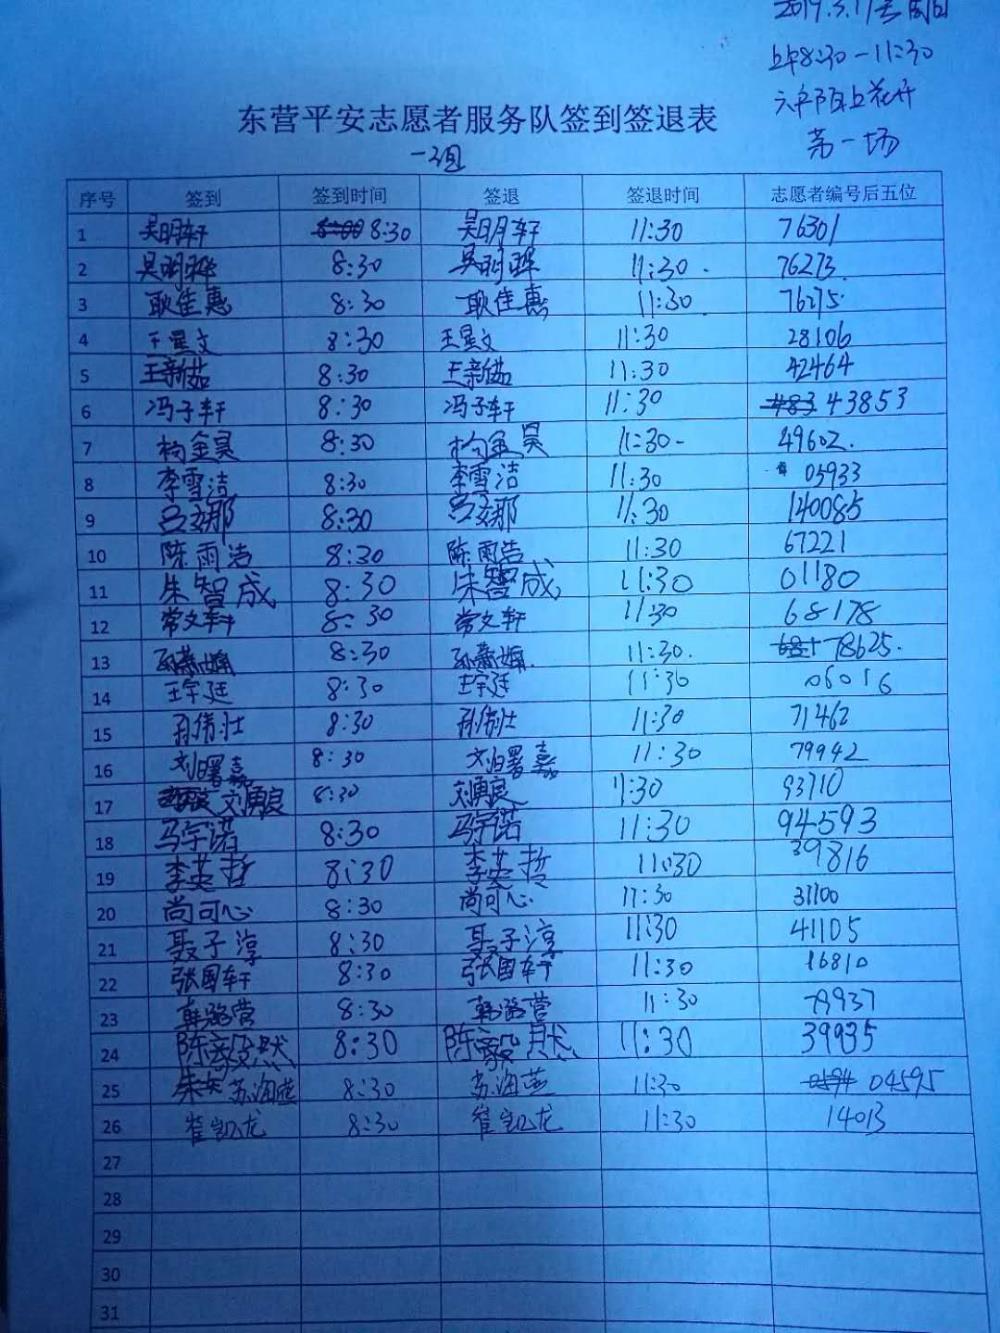 2019.3.17 周日
上午8:30-11:30
六户陌上花开
第一场
东营平安志愿者服务队签到签退表
一组
序号 签到 签到时间 签退 签退时间 志愿者编号后五位
1 吴明轩 8:30 吴明轩 11:30 76301
2 吴明晔 8:30 吴明晔 11:30 76273
3 耿佳惠 8:30 耿佳惠 11:30 76275
4 王星文 8:30 王星文 11:30 28106
5 王新茹 8:30 王新茹 11:30 42464
6 冯子轩 8:30 冯子轩 11:30 43853
7 杨金昊 8:30 杨金昊 11:30 49602
8 李雪洁 8:30 李雪洁 11:30 05933
9 8:30 11:30 140085
10 陈雨浩 8:30 陈雨浩 11:30 67221
11 朱智成 8:30 朱智成 11:30 01180
12 常文轩 8:30 常文轩 11:30 68178
13 8:30 11:30 78625
14 王宇廷 8:30 王宇廷 11:30 06016
15 孙伟壮 8:30 孙伟壮 11:30 71462
16 刘曙嘉 8:30 刘曙嘉 11:30 79942
17 刘勇良 8:30 刘勇良 11:30 93710
18 马宇诺 8:30 马宇诺 11:30 94593
19 李英哲 8:30 李英哲 11:30 39816
20 尚可心 8:30 尚可心 11:30 31100
21 聂子淳 8:30 聂子淳 11:30 41105
22 张国轩 8:30 张国轩 11:30 16810
23 韩潞营 8:30 韩潞营 11:30 79937
24 陈毅然 8:30 陈毅然 11:30 39935
25 苏海燕 8:30 苏海燕 11:30 04595
26 崔凯龙 8:30 崔凯龙 11:30 14013
27
28
29
30
31